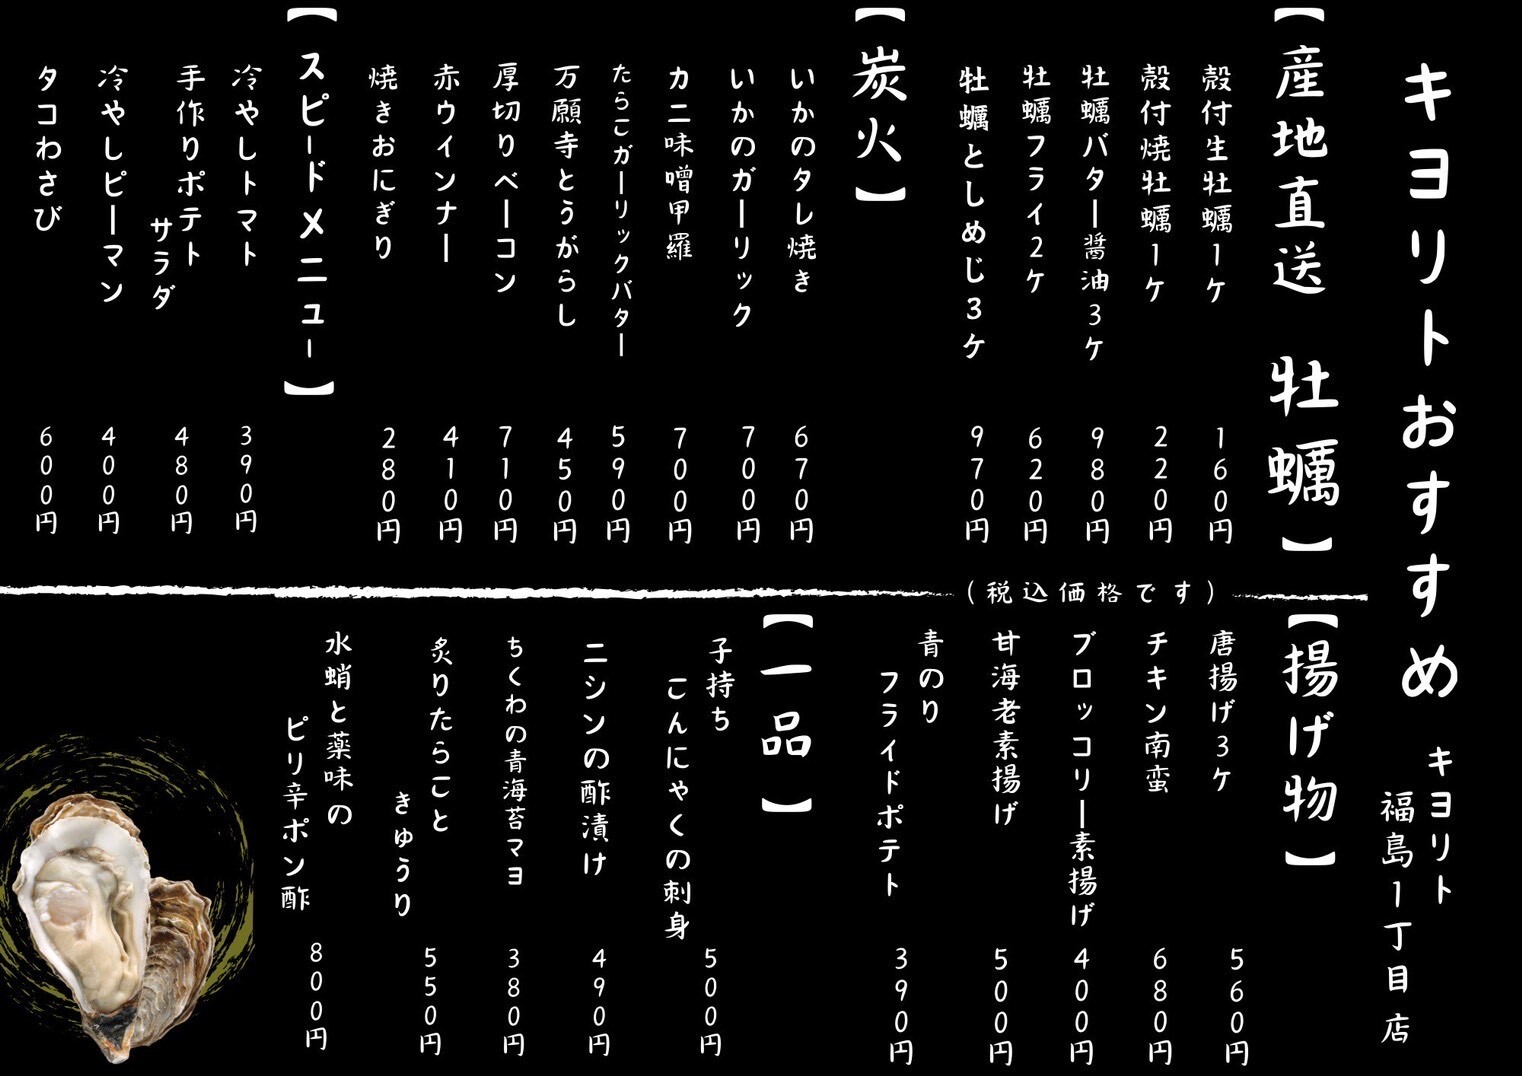 キヨリトおすすめ
キヨリト
福島1丁目店
【産地直送 牡蠣】
殻付生牡蠣1ケ 160円
殻付焼牡蠣1ケ 220円
牡蠣バター醤油3ケ 980円
牡蠣フライ2ケ 620円
牡蠣としめじ3ケ 970円
【炭火】
いかのタレ焼き 670円
いかのガーリック 700円
カニ味噌甲羅 700円
たらこガーリックバター 590円
万願寺とうがらし 450円
厚切りベーコン 710円
赤ウインナー 410円
焼きおにぎり 280円
【スピードメニュー】
冷やしトマト 390円
手作りポテト
サラダ 480円
冷やしピーマン 400円
タコわさび 600円
(税込価格です)
【揚げ物】
唐揚げ3ケ 560円
チキン南蛮 680円
ブロッコリー素揚げ 400円
甘海老素揚げ 500円
青のり
フライドポテト 390円
【一品】
子持ち
こんにゃくの刺身 500円
ニシンの酢漬け 490円
ちくわの青海苔マヨ 380円
炙りたらこと
きゅうり 550円
水蛸と薬味の
ピリ辛ポン酢 800円